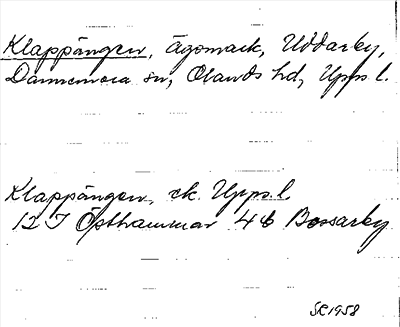 Klappängen, Ägomark, Uddarby,
Dannemora sn, Olands hd, Upps l.
Klappängen, ek. Upps. l.
12 I Östhammar 4 b Bossarby
SR 1958